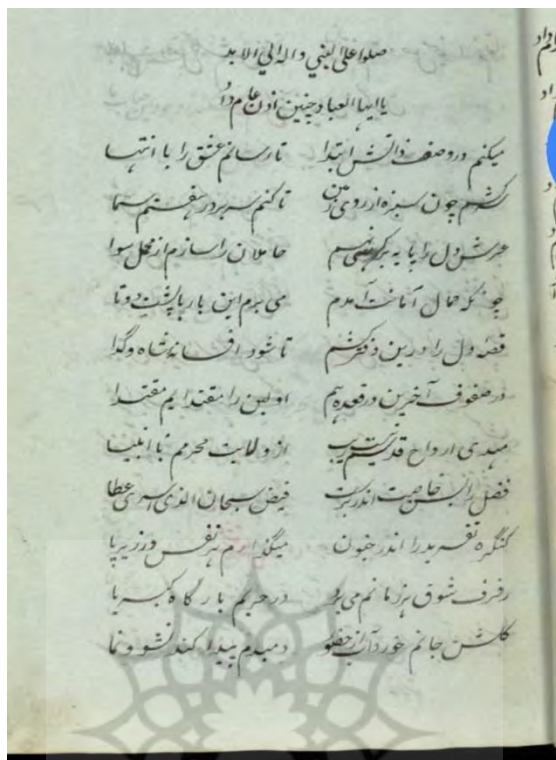 صلوا علی النبي و اله الي الابد
یا ایها العباد چنین اذن عام داد
میکنم در وصف ذاتش ابتدا تا رسانم عشق را با انتها
کشم چون سبزه از روی زمین تا کنم سر بر در هفتم سما
عرش دل را پایه بر کرسی نهم حاملان را سازم از محل سوا
چونکه حمال آنانت آمدم می برم این بار با پشت دوتا
قصه دل را درین دفتر کشم تا شود افسانه شاه و گدا
در صفوف آخرین در قعده هم اولین را مقتدایم مقتدا
مهدی ارواح قدسیم از ولایت محرمم با انبیا
فضل خاصت اندر فیض سبحان الذی اسری عطا
کنگره تفرید را اندر خون میگذارم هر نفس در زیر پا
رفرف شوق هر زمانم می برد در حریم بارگاه کبریا
گلشن جانم خورد آب از خضر دمبدم پیدا کند نشو و نما